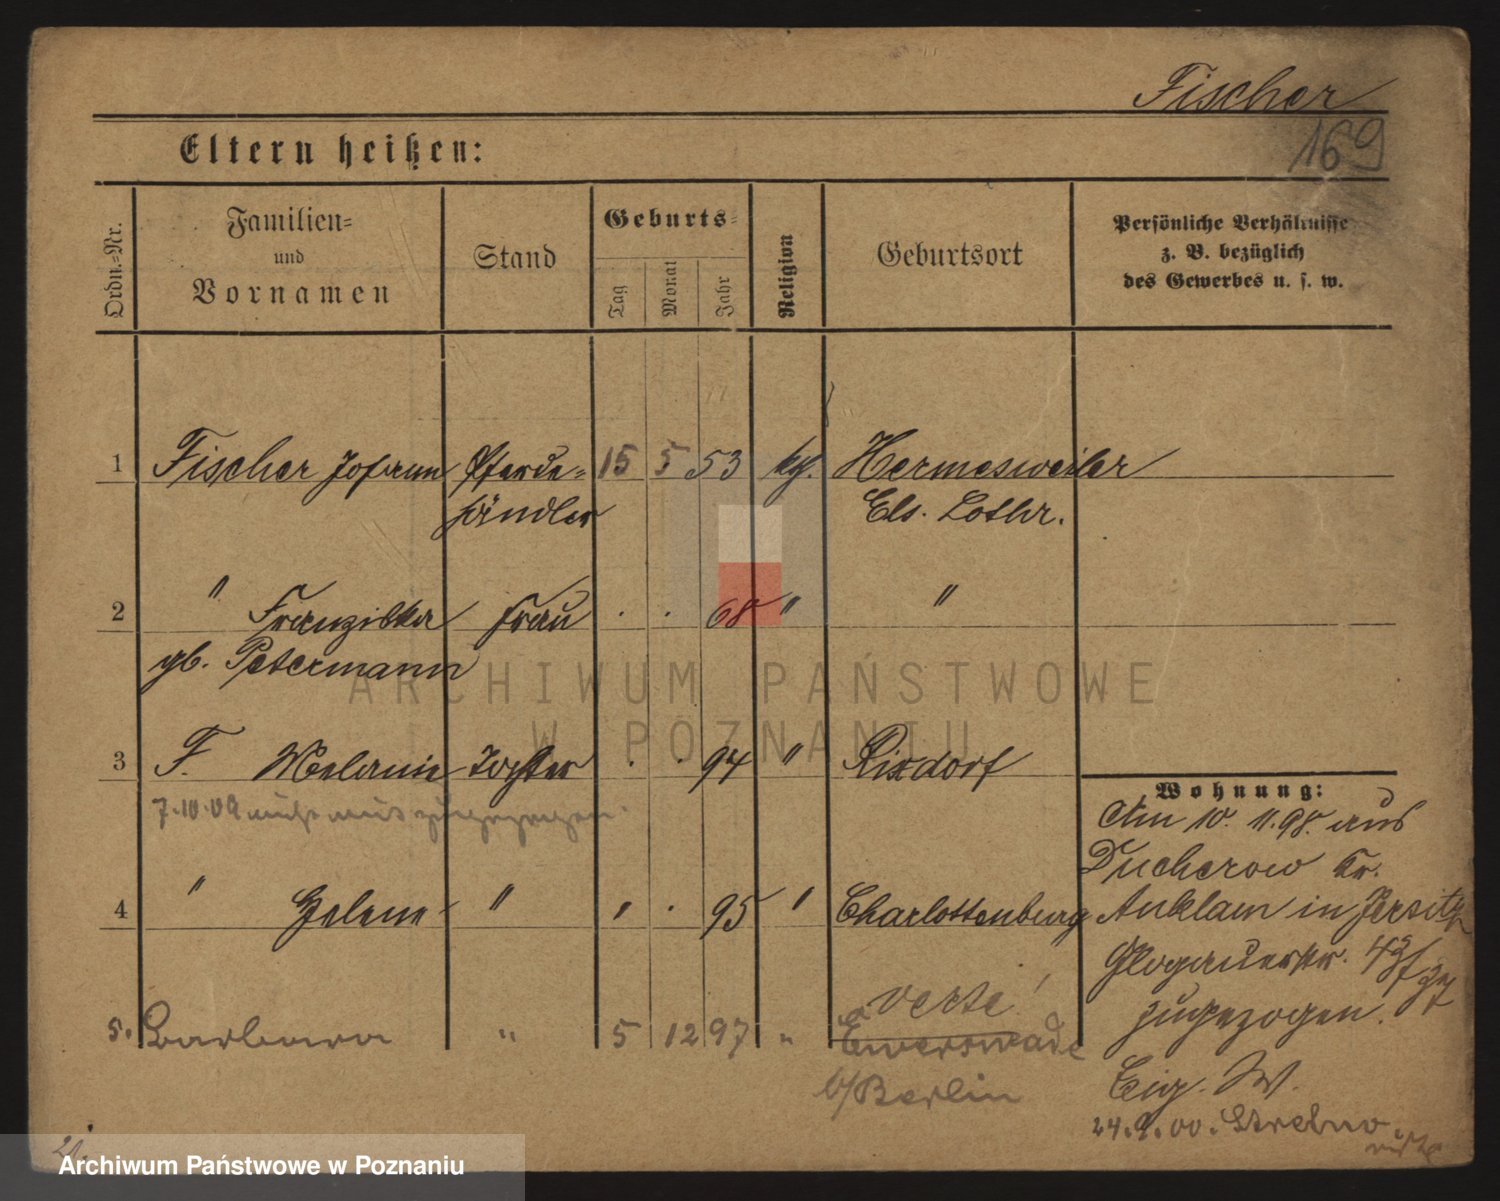 Fischer
169
Eltern heißen:
Ordn.-Nr.
Familien- und Vornamen
Stand
Geburts-
Tag
Monat
Jahr
Religion
Geburtsort
Persönliche Verhältnisse
z. B. bezüglich
des Gewerbes u. s. w.
1 Fischer Johann Pferde- 15 5 53 kg. Hermesweiler
händler Els. Lothr.
2 " Franziska Frau . . 68 " "
gb. Petermann
3 F. Melanie Tochter . . 94 " Rixdorf
Wohnung:
7.10.09 zugezogen.
Am 10. 11. 98. aus
Ducherow Kr.
4 " Helene " " . 95 " Charlottenburg
Anklam in Jersitz
Glogauerstr.
zugezogen.
5. Barbara " 5 12 97 "
b/Berlin
Eig. W.
24.9.00. Strelno
21.
ARCHIWUM PAŃSTWOWE
W POZNANIU
Archiwum Państwowe w Poznaniu